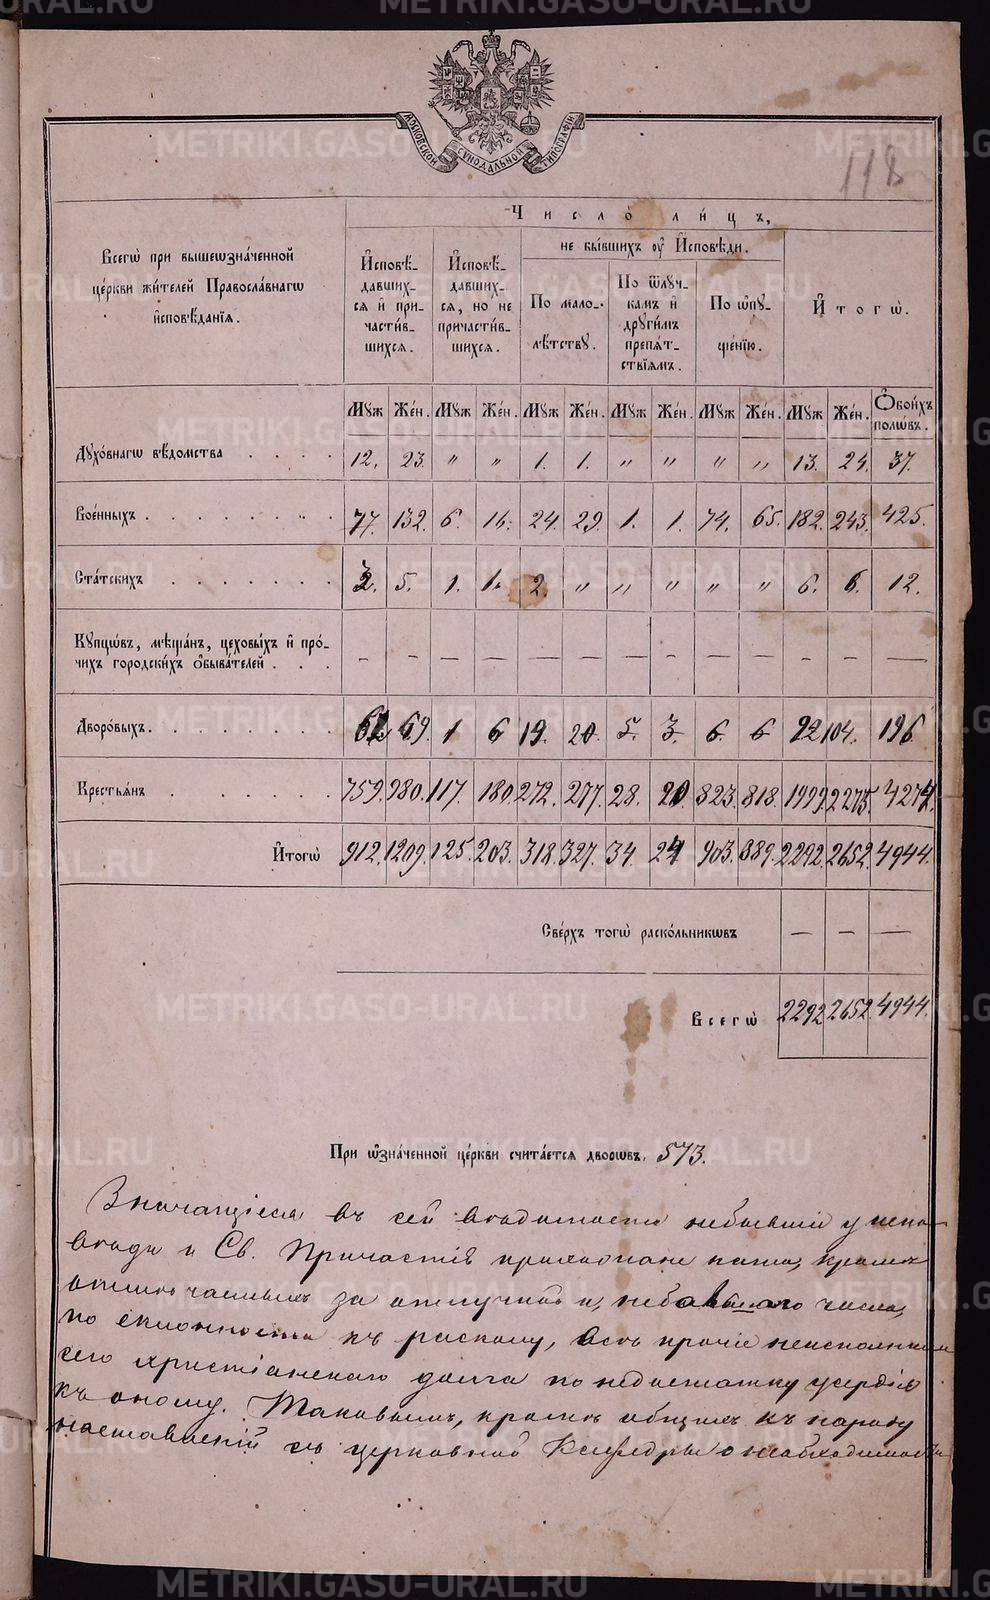 МОСКОВСКОЙ СѴНОДАЛЬНОЙ ТИПОГРАФІИ
118
Всегѡ̀ при вышеѡзна́ченной це́ркви жи́телей Правосла́внагѡ и҆сповѣ́данїѧ.
Число̀ ли́цъ,
И҆сповѣ́давшихсѧ и҆ причасти́вшихсѧ.
И҆сповѣ́давшихсѧ, но не причасти́вшихсѧ.
не бы́вшихъ ᲂу҆ И҆сповѣди.
По малолѣ́тству.
По ѿлꙋ́чкамъ и҆ дрꙋги́мъ препѧ́тствїѧмъ.
По ѡ҆пꙋще́нїю.
И҆того̀.
Мꙋж Же́н. Мꙋж Же́н. Мꙋж Же́н. Мꙋж Же́н. Мꙋж Же́н. Мꙋж Же́н. Ѻ҆бои́хъ полѡ́въ.
Дꙋхо́внагѡ вѣ́домства . . . . 12. 23. " " 1. 1. " " " " 13. 24. 37.
Вое́нныхъ . . . . . . . . 77. 132. 6. 16. 24. 29. 1. 1. 74. 65. 182. 243. 425.
Ста́тскихъ . . . . . . . 3. 5. 1. 1. 2. " " " " " 6. 6. 12.
Кꙋпцѡ́въ, мѣща́нъ, цеховы́хъ и҆ про́чихъ городски́хъ ѡ҆быва́телей . . . – – – – – – – – – – – – –
Дворо́выхъ . . . . . . . . 69. 1 6 19. 20. 5. 3. 6. 6 92 104. 196
Крестьѧ́нъ . . . . . . . 759. 980. 117. 180. 272. 277. 28. 20 823. 818. 1999. 2275. 4274.
И҆того̀ 912. 1209. 125. 203. 318. 327. 34. 24 903. 889. 2292. 2652. 4944.
Све́рхъ тогѡ̀ раско́льникѡвъ – – –
Всегѡ̀ 2292 2652 4944.
При ѡ҆зна́ченной це́ркви счита́етсѧ дворѡ́въ. 573.
Значащіеся въ сей ведомости небывшіи у испо-
веди и Св. Причастія прихожане наши, кроме
за отлучкою и, числа,
по склонности къ расколу, все прочіе неисполнили
сего христіанскаго долга по недостатку усердія
къ оному. Таковымъ, кроме общихъ къ народу
наставленій съ церковной Кафедры о необходимости
METRIKI.GASO-URAL.RU